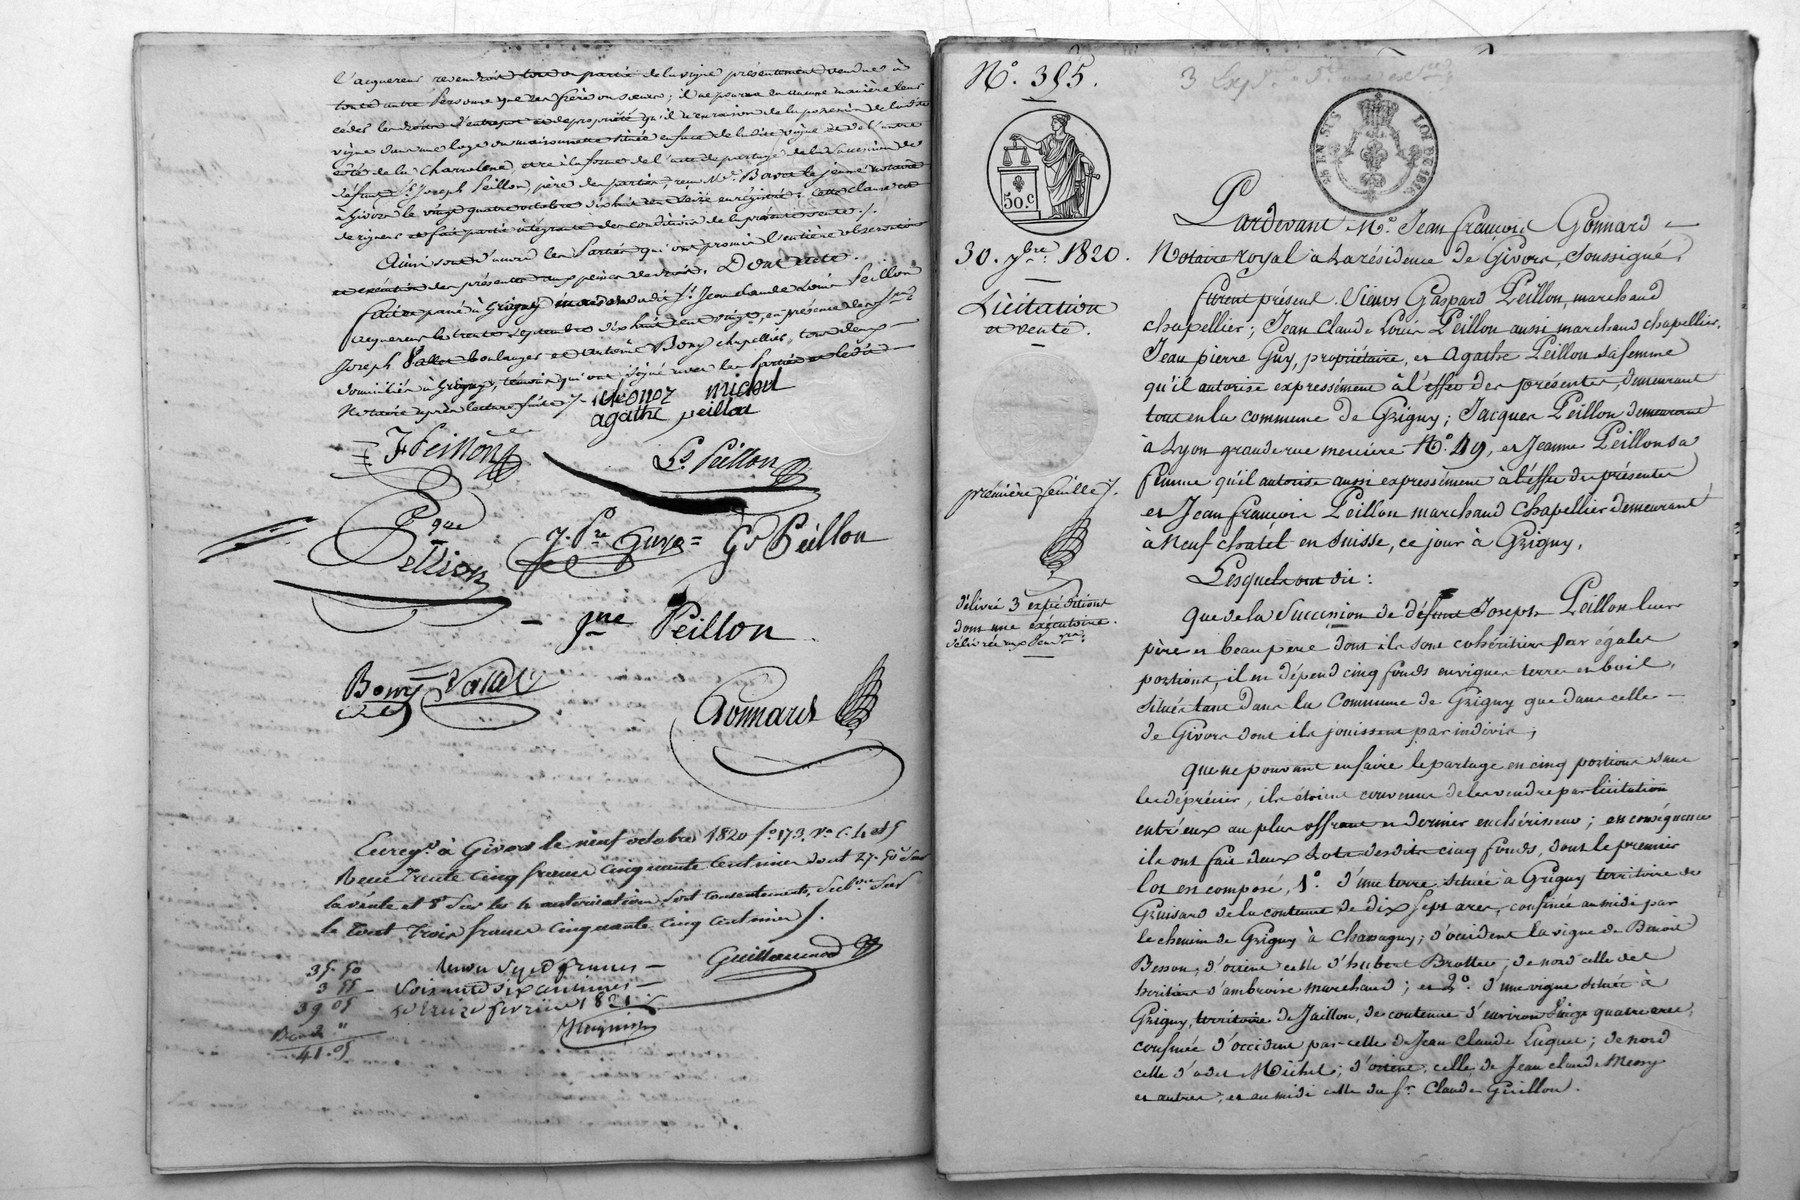 l'acquereur revendroit tout ou partie de la vigne présentement vendue à
toute autre personne que ses frère ou sœurs; il ne pourra en aucune manière leur
céder les droits d'entrepot et de propriété qu'il a en raison de la possession de ladite
vigne dans une loge ou maisonnette située en face de ladite vigne et de l'autre
côté de la Charrolerie, et ce à la forme de l'acte de partage de la succession de
défunt Sr. Joseph Peillon, père des parties, reçu Me. le jeune notaire
à Givors le vingt quatre octobre dix huit cent seize enregistré; cette clause est
de rigueur et fait partie intégrante des conditions de la présente vente ./.
Ainsi sont d'accord les Parties qui ont promis l'entière observation
et exécution des présentes aux peines de droit. Dont acte.
fait et passé à Grigny au dudit Sr. Jean claude Louis Peillon
acquereur le trente septembre dix huit cent vingt, en présence de
Joseph Vallet boulanger et Antoine Bony chapellier, tous deux
domiciliés à Grigny, témoins qui ont signé avec les Parties et ledit
Notaire après lecture faite ./.
michel
agathe peillon
J Peillon
Ls Peillon
Jque
Pellion
J. Pre Guy
Gd Peillon
Jne Peillon
Bony Vallet
Gonnard
Enregé. à Givors le neuf octobre 1820 fo. 173. Vo. C. 4 et 5
Reçu trente cinq francs cinquante centimes dont 27. 50 sur
la vente et 8 sur les 4 autorisations Sont consentements, Subon. Sur
le tout trois francs cinquante cinq centimes ./.
Guillermond
35. 50
3 55
39 05
2 "
41. 05
francs
Soixante dix centimes
février 1821
No. 395.
50. c
30. 7bre. 1820.
Licitation
et vente.
première feuille ./.
délivré 3 expéditions
dont une exécutoire.
délivrée aux
3 Expn.
LOI DE 1816
Pardevant Me. Jean françois Gonnard
Notaire royal à la résidence de Givors, Soussigné;
furent présent. Sieurs Gaspard Peillon, marchand
chapellier; Jean Claude Louis Peillon aussi marchand chapellier,
Jean pierre Guy, propriétaire, et Agathe Peillon sa femme
qu'il autorise expressément à l'effet des présentes, demeurant
tous en la commune de Grigny; Jacques Peillon demeurant
à Lyon grande rue merciere No. 49, et Jeanne Peillon sa
femme qu'il autorise aussi expressément à l'effet des présentes
et Jean françois Peillon marchand chapellier demeurant
à Neuf chatel en Suisse, ce jour à Grigny,
Lesquels ont dit:
Que de la Succession de défunt Joseph Peillon leur
père et beau père dont ils sont cohéritiers par égales
portions, il en dépend cinq fonds en vigne terre et bois,
situés tant dans la Commune de Grigny que dans celle
de Givors dont ils jouissent par indivis;
Que ne pouvant en faire le partage en cinq portions sans
les déprécier, ils étoient convenus de les vendre par licitation
entr'eux au plus offrant et dernier enchérisseur; en conséquence
ils ont fait deux Lots desdits cinq fonds, dont le premier
lot est composé, 1o. d'une terre située à Grigny territoire de
Gruisard de la contenue de dix sept ares, confinée au midi par
le chemin de Grigny à Chassagny; d'occident la vigne de Benoit
Besson, d'orient celle d'hubert Brottes; de nord celle des
héritiers d'ambroise marchand; et 2o. d'une vigne située à
Grigny, territoire de Jaillon, de contenue d'environ vingt quatre ares,
confinée d'occident par celle de Jean Claude Luquet; de nord
celle d'odet Michel; d'orient, celle de Jean claude Messy
et autres, et au midi celle du Sr. Claude Guillon.